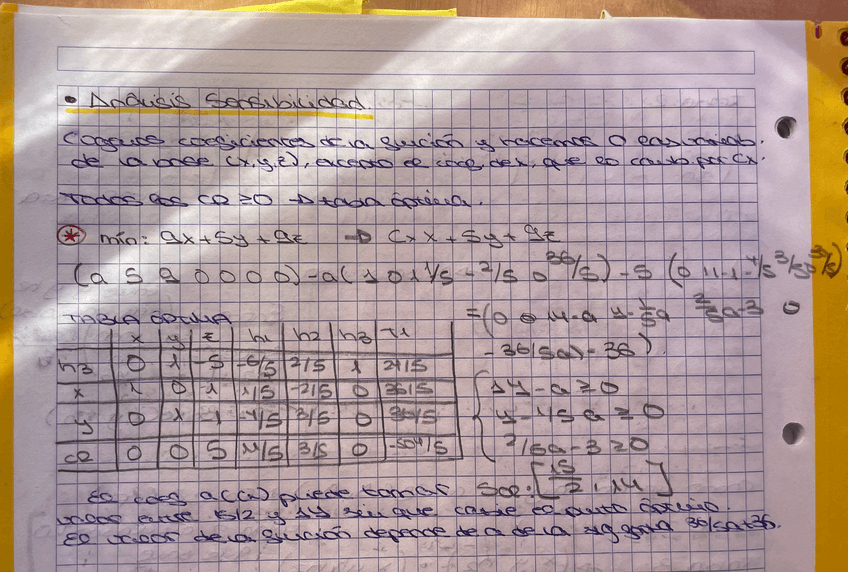 • Análisis Sensibilidad.
Cogemos coeficientes de la función y hacemos 0 las variab.
de la base (x,y,z), excepto el coef de x, que lo cambio por Cx.
Todos los CR ≥0 → tabla óptima.
* mín: 9x+5y+9z → Cx x + 5y + 9z
(a 5 9 0 0 0 0) - a( 1 0 1 1/5 -2/5 0 36/5) - 5 (0 1 -1 -4/5 3/5 0 36/5)
= (0 0 14-a 4-1/5a 2/5a-3 0
-36/5a)-36).
TABLA ÓPTIMA
x y z h1 h2 h3 TI
h3 0 1 -5 -6/5 2/5 1 24/5
x 1 0 1 1/5 -2/5 0 36/5
y 0 1 -1 -4/5 3/5 0 36/5
CR 0 0 5 11/5 3/5 0 -504/5
14-a ≥0
4-1/5 a ≥ 0
2/5a-3 ≥0
Sol: [15/2, 14]
El coef a(x) puede tomar
valor entre 15/2 y 14 sin que cambie el punto óptimo.
El valor de la función depende de a de la sig forma 36/5a+36.